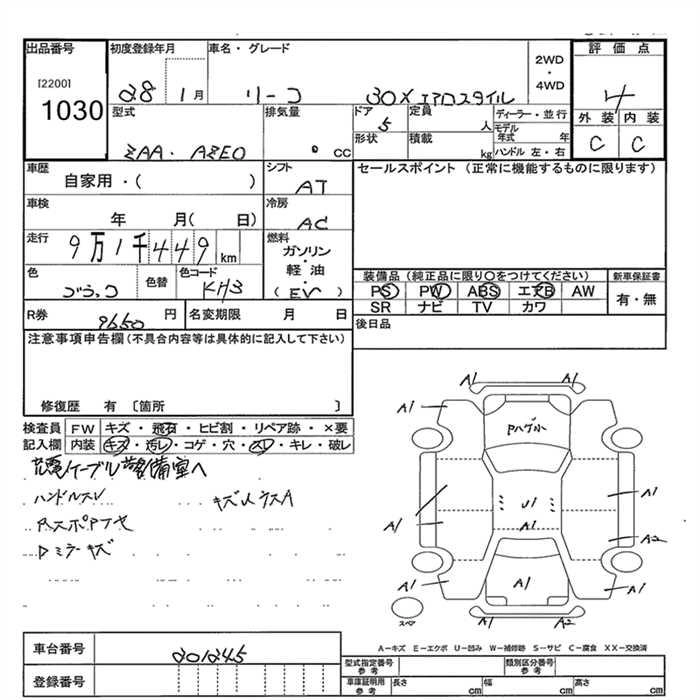 出品番号
[2200]
1030
初度登録年月
28 1月
車名・グレード
リーフ 30X エアロスタイル
2WD
・
4WD
評価点
4
外装 内装
C C
型式
ZAA・AZE0
排気量
cc
ドア
5
形状
定員
人
積載
kg
ディーラー・並行
モデル
年式 年
ハンドル 左・右
車歴
自家用・( )
シフト
AT
セールスポイント (正常に機能するものに限ります)
車検
年 月( 日)
冷房
AC
走行
9万1千449km
燃料
ガソリン
・
軽油
・
(EV)
色
ブラック
色替
色コード
KH3
装備品(純正品に限り○をつけてください)
PS PW ABS エアB AW
SR ナビ TV カワ
新車保証書
有・無
R券 9650 円
名変期限 月 日
後日品
注意事項申告欄(不具合内容等は具体的に記入して下さい)
修復歴 有 〔箇所 〕
検査員
記入欄
FW キズ・飛石・ヒビ割・リペア跡・×要
内装 キズ・汚レ・コゲ・穴・スレ・キレ・破レ
充電ケーブル警備室へ
ハンドルスレ
キズ凹ウスA
ドミラーキズ
A1 A1
A1 A1
Pハゲ小
U1
A1
A1 A1
A1 A2
A1 A1 A1
A1 A2
スペア
A-キズ E-エクボ U-凹み W-補修跡 S-サビ C-腐食 XX-交換済
車台番号 201245
登録番号
型式指定番号
参考
類別区分番号
参考
車庫証明用
参考
長さ cm
幅 cm
高さ cm